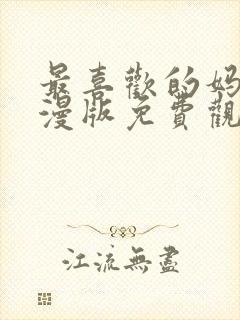 最喜歡的妈
漫版免費觀
江流無盡